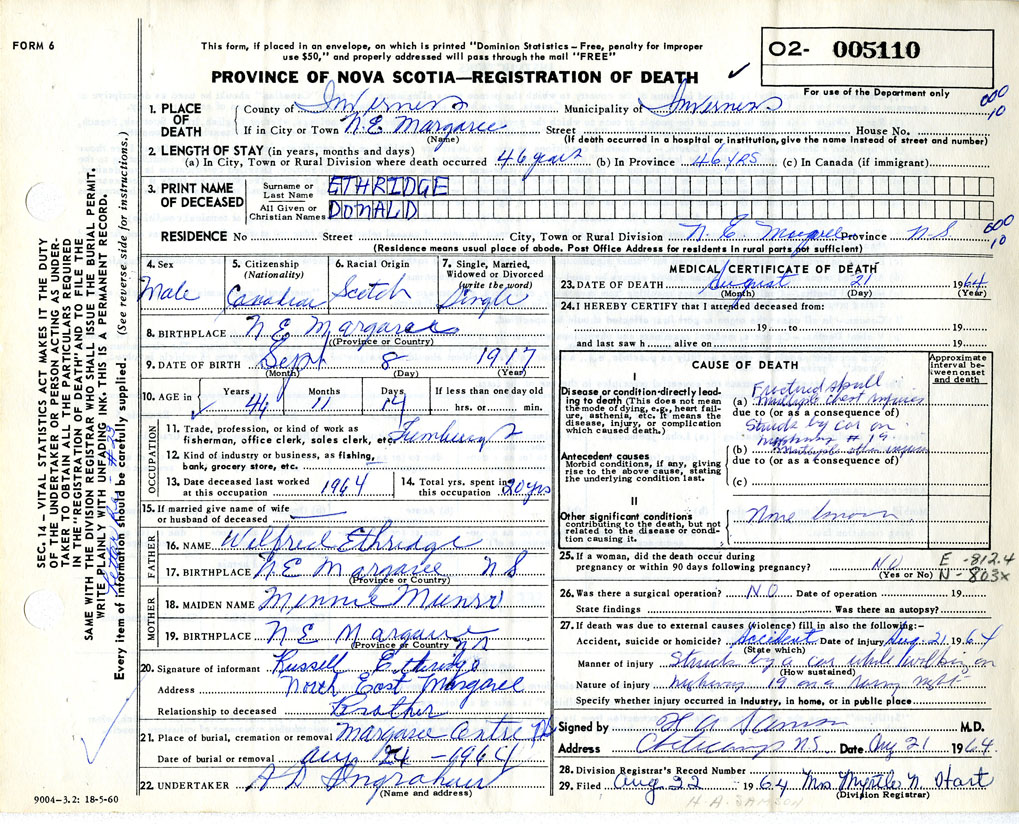 FORM 6
This form, if placed in an envelope, on which is printed "Dominion Statistics – Free, penalty for improper
use $50," and properly addressed will pass through the mail "FREE"
PROVINCE OF NOVA SCOTIA—REGISTRATION OF DEATH
02- 005110
For use of the Department only
1. PLACE OF DEATH
County of Inverness Municipality of Inverness
If in City or Town N.E. Margaree Street House No.
(Name) (If death occurred in a hospital or institution, give the name instead of street and number)
2. LENGTH OF STAY (in years, months and days)
(a) In City, Town or Rural Division where death occurred 46 years (b) In Province 46 YRS (c) In Canada (if immigrant)
3. PRINT NAME OF DECEASED
Surname or Last Name ETHRIDGE
All Given or Christian Names DONALD
RESIDENCE No Street City, Town or Rural Division N. E. Margaree Province N S
(Residence means usual place of abode. Post Office Address for residents in rural parts not sufficient)
000
10
600
10
SEC. 14—VITAL STATISTICS ACT MAKES IT THE DUTY
OF THE UNDERTAKER OR PERSON ACTING AS UNDER-
TAKER TO OBTAIN ALL THE PARTICULARS REQUIRED
IN THE "REGISTRATION OF DEATH" AND TO FILE THE
SAME WITH THE DIVISION REGISTRAR WHO SHALL ISSUE THE BURIAL PERMIT.
WRITE PLAINLY WITH UNFADING INK. THIS IS A PERMANENT RECORD.
Every item of information should be carefully supplied. (See reverse side for instructions.)
4. Sex
Male
5. Citizenship
(Nationality)
Canadian
6. Racial Origin
Scotch
7. Single, Married,
Widowed or Divorced
(write the word)
Single
8. BIRTHPLACE N E Margaree
(Province or Country)
9. DATE OF BIRTH Sept 8 1917
(Month) (Day) (Year)
10. AGE in Years 46 Months 11 Days 14 If less than one day old
hrs. or min.
OCCUPATION
11. Trade, profession, or kind of work as
fisherman, office clerk, sales clerk, etc.
12. Kind of industry or business, as fishing,
bank, grocery store, etc.
13. Date deceased last worked
at this occupation 1964
14. Total yrs. spent in
this occupation 20 yrs
15. If married give name of wife
or husband of deceased
FATHER
16. NAME Wilfred Ethridge
17. BIRTHPLACE N E Margaree N S
(Province or Country)
MOTHER
18. MAIDEN NAME Minnie Munro
19. BIRTHPLACE N E Margaree NS
(Province or Country)
20. Signature of informant Russell Ethridge
Address North East Margaree
Relationship to deceased Brother
21. Place of burial, cremation or removal Margaree Centre NS
Date of burial or removal Aug 24 - 1964
22. UNDERTAKER A D Ingraham
(Name and address)
9004-3.2: 18-5-60
MEDICAL CERTIFICATE OF DEATH
23. DATE OF DEATH August 21 1964
(Month) (Day) (Year)
24. I HEREBY CERTIFY that I attended deceased from:
19 to 19
and last saw h alive on 19
CAUSE OF DEATH
Approximate interval between onset and death
I
Disease or condition directly lead-
ing to death (This does not mean
the mode of dying, e.g., heart fail-
ure, asthenia, etc. It means the
disease, injury, or complication
which caused death.)
Fractured skull
(a) multiple chest injuries
due to (or as a consequence of)
Struck by car on
highway # 19
(b)
due to (or as a consequence of)
(c)
Antecedent causes
Morbid conditions, if any, giving
rise to the above cause, stating
the underlying condition last.
II
Other significant conditions
contributing to the death, but not
related to the disease or condi-
tion causing it.
None known
25. If a woman, did the death occur during
pregnancy or within 90 days following pregnancy? NO
(Yes or No)
E -812.4
N - 803x
26. Was there a surgical operation? NO Date of operation 19
State findings Was there an autopsy?
27. If death was due to external causes (violence) fill in also the following:–
Accident, suicide or homicide? Accident Date of injury Aug. 21 1964
(State which)
Manner of injury Struck by a car while walking on
(How sustained)
Nature of injury highway 19 on a rainy night
Specify whether injury occurred in industry, in home, or in public place
Signed by H A Samson M.D.
Address Cheticamp N.S. Date Aug 21 1964
28. Division Registrar's Record Number
29. Filed Aug 22 1964 Mrs Myrtle N. Hart
(Division Registrar)
H. A. SAMSON